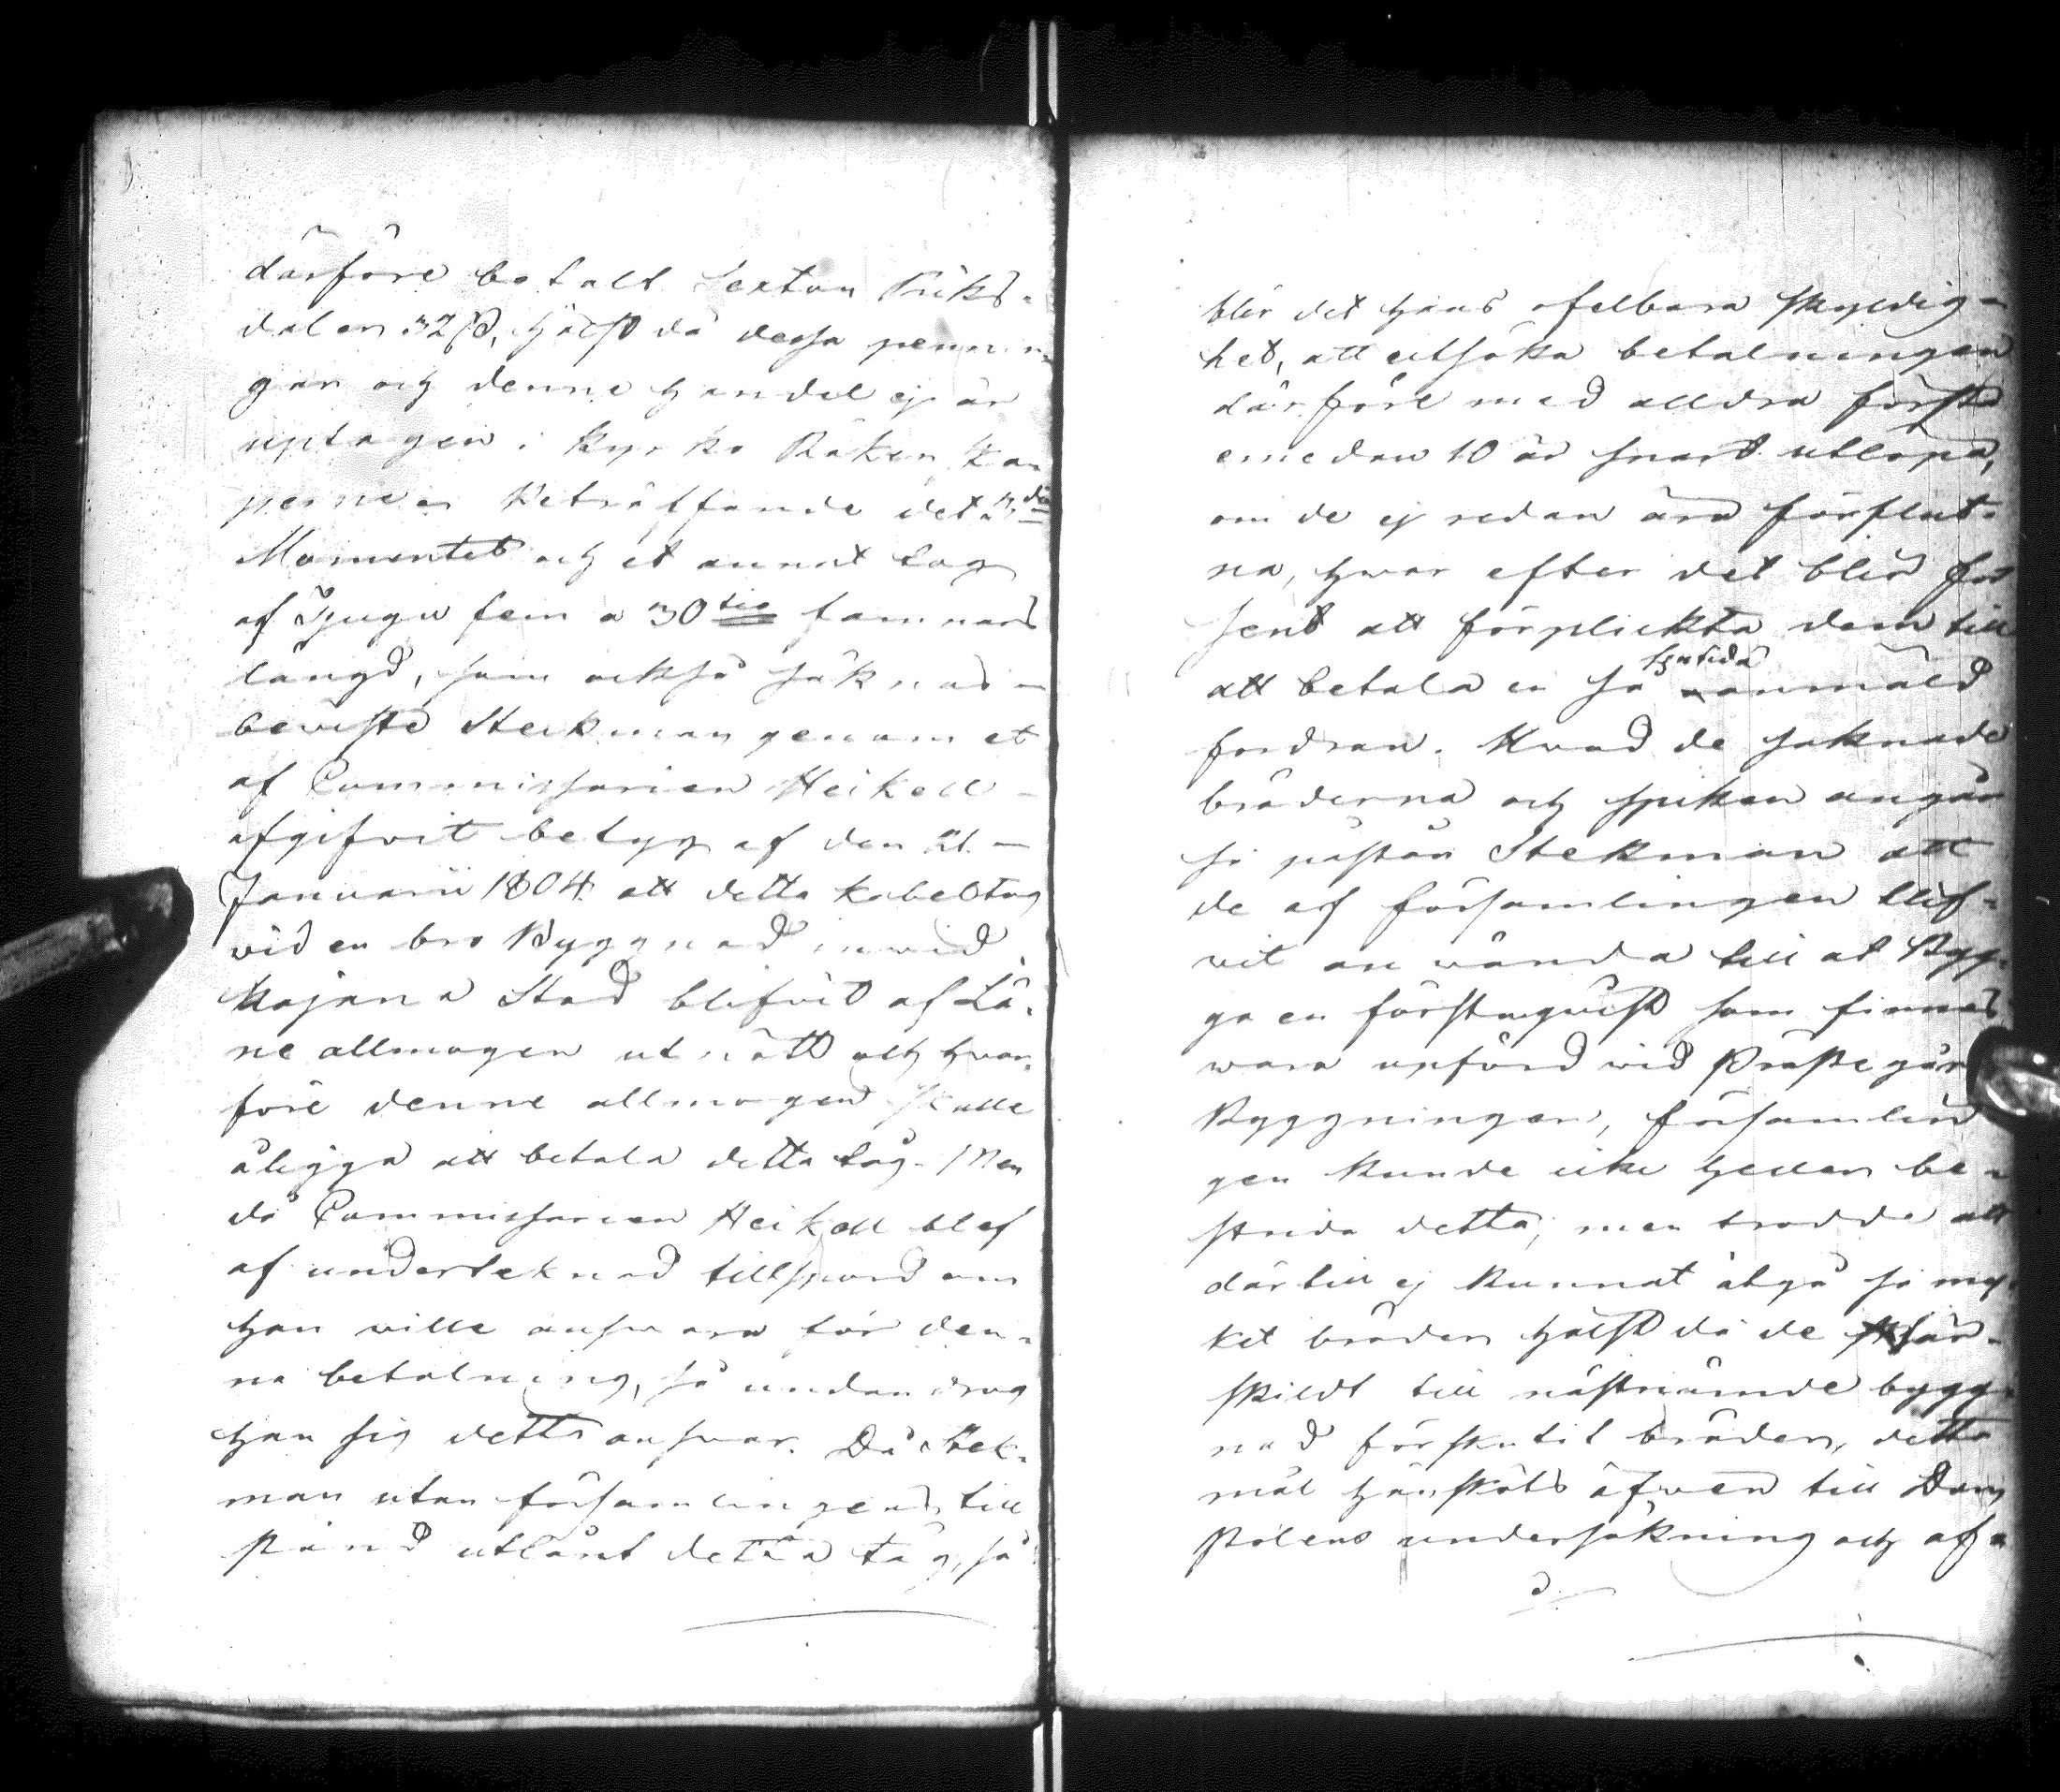 därföre betalt Sexton Riks-
daler 32 ß, hälst då dessa pennin-
gar och denne handel ej är
uptagen i Kyrko Räken ka-
perne. Beträffande det 3die
Momentet och et annat tog
af Tjugu fem a 30tio famnars
längd, som också saknas
beviste Stekman genom et
af Commissarien Heikell
afgifvit betyg af den 21
Januarii 1804 att detta kabeltog
vid en bro Byggnad inwid
Kajana Stad blifvit af Lä-
ne allmogen utnött och hvar-
före denne allmogen skulle
åligga att betala detta tåg. Men
då Commissarien Heikell blef
af underteknad tillspord om
han wille answara för den-
na betalning, så undandrog
han sig detta answar. Då Stek-
man utan församlingens till
stånd utlånt detta tåg, så
blir det hans ofelbara skyldig-
het, att utsöka betalningen
därföre med alldra första
emedan 10 år snart utlöpa,
om de ej redan äro förflut-
na, hwar efter det blir för
sent att förplickta dem till
att betala en så sentida anmäld
fordran. Hwad de saknade
bräderna och spiken angår
så påstår Stekman att
de af församlingen blif-
vit anwända till at Byg-
ga en förstuguqvist som finnes
wara upförd wid Prästegår
Byggningen, församlin
gen kunde icke heller be-
strida detta, men trodde att
därtill ej kunnat åtgå så my-
ket bräder hälst då de sär-
skildt till nästnämde bygg-
nad förskutit bräder, detta
mål hänsköts äfwen till Dom
stolens undersökning och af-